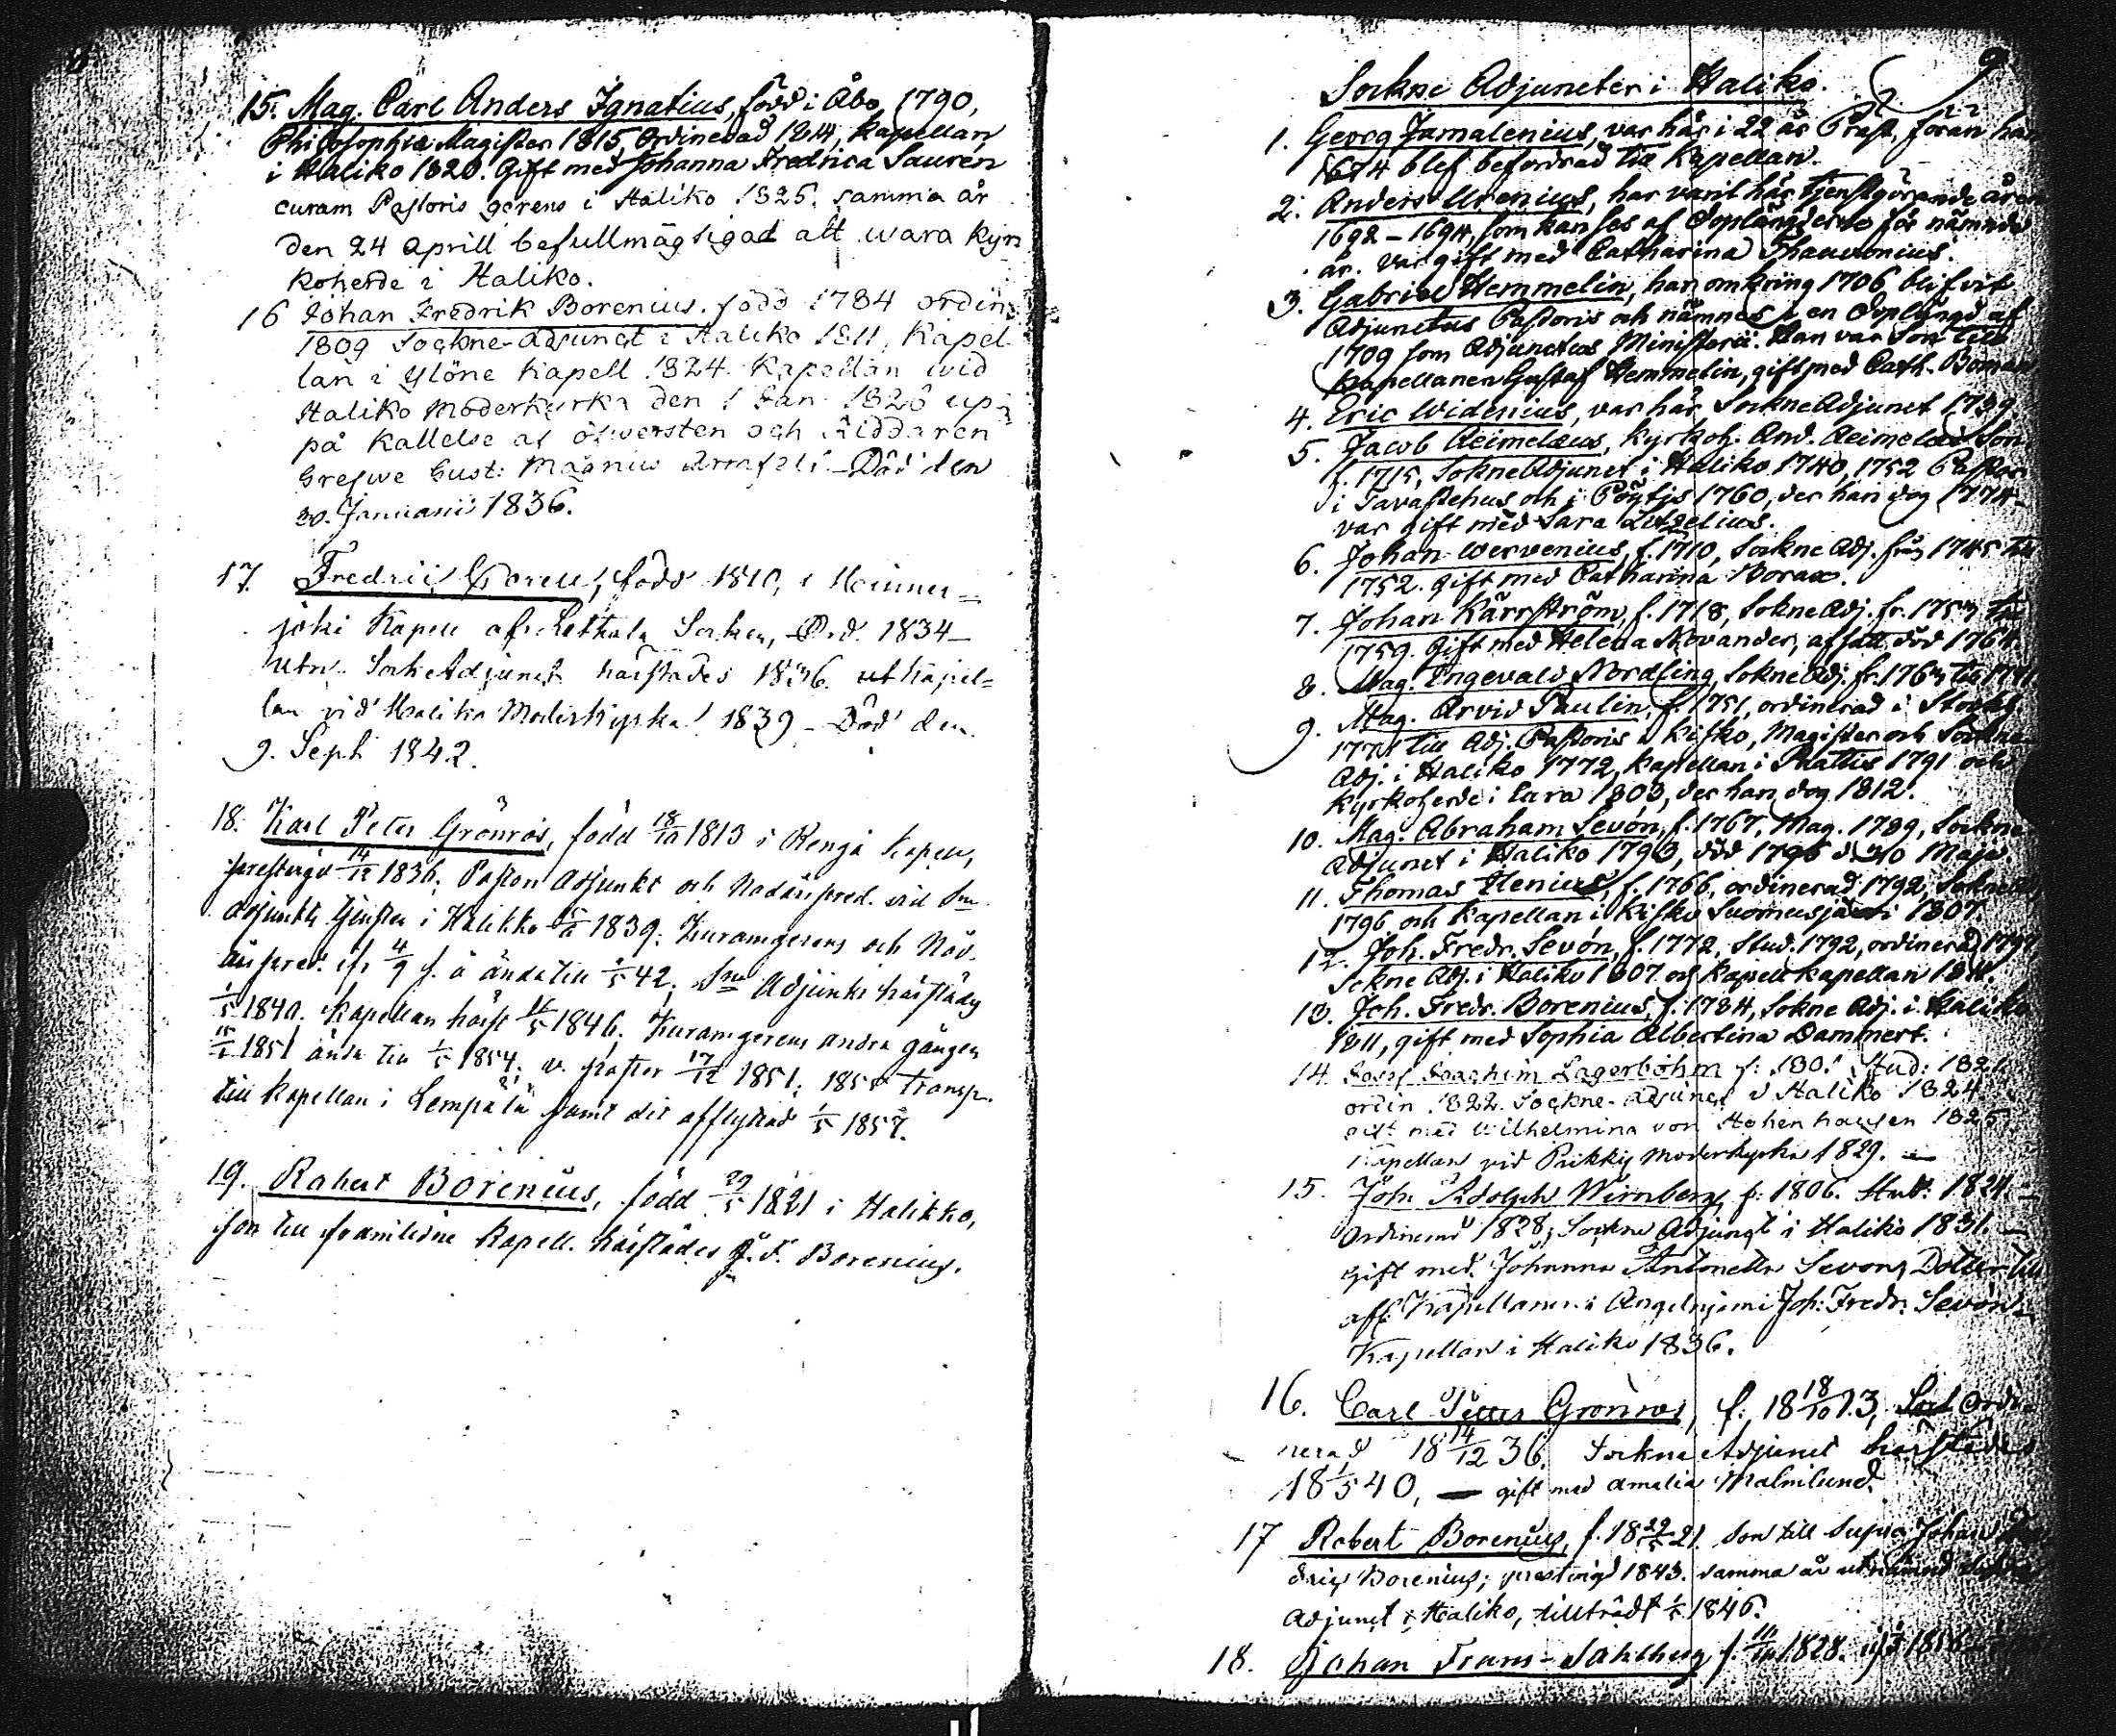 15. Mag. Carl Anders Ignatius, född i Åbo, 1790,
Philosophiæ Magister 1815, Ordinerad 1814, Kapellan
i Haliko 1820. Gift med Johanna Fredrica Sauren
curam Pastoris gerens i Haliko 1825. samma år
den 24 Aprill befullmägtigad att wara kyr
koherde i Haliko.
16 Johan Fredrik Borenius. född 1784 ordin
1809 Sockne-Adjunct i Haliko 1811, Kapel
lan i Ylöne Kapell 1824. Kapellan wid
Haliko Moderkyrka den 1 Jan. 1826 up
på Kallelse af öfwersten och Riddaren
Grefwe Gust: Magnus Armfelt - Död den
20. Januarii 1836.
17. född 1810, i Heinner=
joki Kapell af Socken, Ord. 1834 -
Utn. Sockne Adjunct härstädes 1836. ut kapel=
lan vid Haliko Moderkyrka 1839 - Död den
9. Sept 1842.
18. Karl Peter Grönros, född 18/10 1813 i Kapell,
prestvigd 14/12 1836. Pastors Adjunkt och Nådårspred. vid Sn
adjunkts tjensten i Halikko 1839. Kuramgerens och Nåd.
årspred. 4/9 s. å ända till 42. Sne Adjunkt härstädes
1/5 1840. Kapellan härst 1846. Kuramgerens andra gången
1851 ända till 1/5 1854. v. pastor 17/12 1851. transp.
till Kapellan i Lempälä samt dit afflyttad 1/5
19. Robert Borenius, född 29/5 1821 i Halikko,
son till framlidne Kapell. härstädes J. F. Borenius.
9
Sockne Adjuncter i Haliko.
1. Georg Jamalenius, var här i 22 år Präst, förän han
1674 blef befordrad till Kapellan.
2. Anders Urenius, har varit här tjenstgörande åren
1692 - 1694, som kan ses af Doplängderne för nämnde
år. Var gift med Catharina Thauvonius.
3. Gabriel Hemmelin, har omkring 1706 blifvit
Adjunctus Pastoris och nämnes i en Doplängd af
1709 som Adjunctus Ministerii. Han var Son till
Kapellanen Gustaf Hemmelin, gift med Cath. Boman
4. Eric Widenius, var här Sockne Adjunct 1739
5. Jacob Reimelæus, Kyrkoh. And. Reimelæi Son.
f. 1715, Sokne Adjunct i Haliko 1740, 1752 Pastor
i Tavastehus och i Pöytis 1760, der han dog 1774
var gift med Sara Litzelius.
6. Johan Wervenius, f. 1710, Sockne Adj. från 1745 till
1752. gift med Catharina Borax.
7. Johan Kärrström, f. 1718, Sokne Adj. fr. till
1759. Gift med Helena Novander, afsatt död 1764.
8. Mag. Ingevald Nordling, Sokne Adj. fr. till
9. Mag. Arvid Paulin, f. 1751, ordinerad i Stockh.
till Adj. Pastoris i Kisko, Magister och Sockne
Adj. i Haliko 1772, Kapellan i Prattis 1791 och
Kyrkoherde i Eura 1803, der han dog 1812.
10. Mag. Abraham Sevón, f. 1767, Mag. 1789, Sockne
Adjunct i Haliko 1790, död 1796 d 30 Maji.
11. Thomas Henius, f. 1766, ordinerad 1792, Sokne
1796 och Kapellan i Kisko Suomusjärvi 1807.
12. Joh. Fredr. Sevón, f. 1772, Stud. 1792, ordinerad
Sokne Adj. i Haliko 1807 och Kapell kapellan 1811.
13. Joh. Fredr. Borenius, f. 1784, Sokne Adj. i Haliko
1811, gift med Sophia Albertina Dammert.
14. Josef Joachim Lagerbohm f: 1801 Stud: 1821
ordin 1822. Sockne-adjunct i Haliko 1824.
gift med Wilhelmina von Hohenhausen 1825
Kapellan vid Pikkis moderkyrka 1829. —
15. Joh: Adolph Wirnberg, f: 1806. Stud: 1824 —
Ordinerad 1828, Sockne Adjunct i Haliko 1831. —
gift med Johanna Antonetta Sevon, Dotter till
afl. Kapellanen i Angelniemi Joh: Fredr: Sevón.
Kapellan i Haliko 1836.
16. Carl Petter Grönros, f: 18 18/10 13, Ordi=
nerad 18 14/12 36. Sockne Adjunct härstädes
18 1/5 40, — gift med Amalia Malmlund.
17 Robert Borenius, f. 18 29/5 21. Son till Supra Johan
dric Borenius; prestvigd 1843. samma år utnämnd
Adjunct i Haliko, tillträdt 1/5 1846.
18. Johan Frans Sahlberg f. 1828.